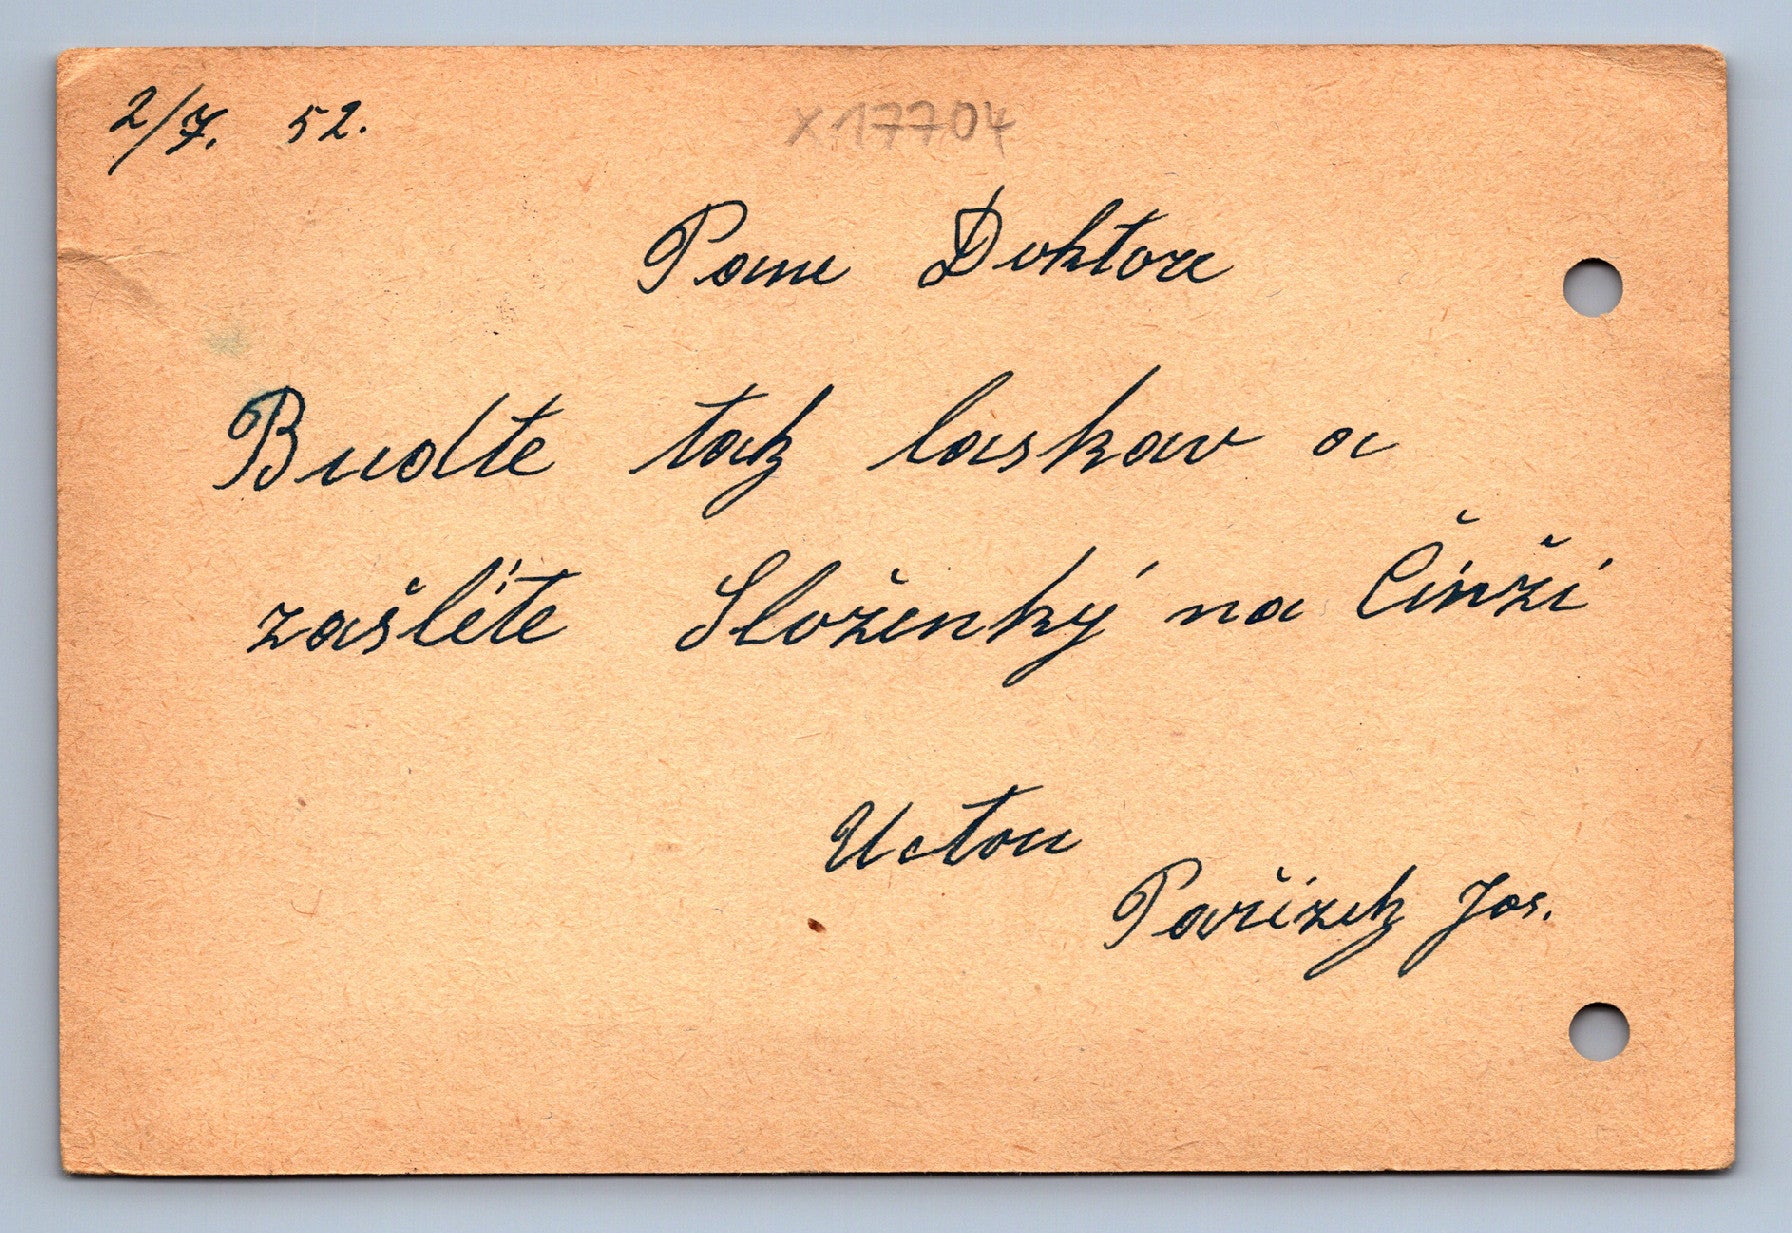 2/7. 52.
x 17704
Pane Doktore
Budte tak laskav a
zašlíte Složenký na Činži
Uctou
Pařízek Jos.